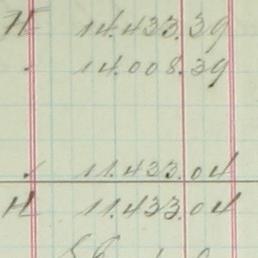 H 14.433.39
" 14.008.39
" 11.433.04
H 11.433.04